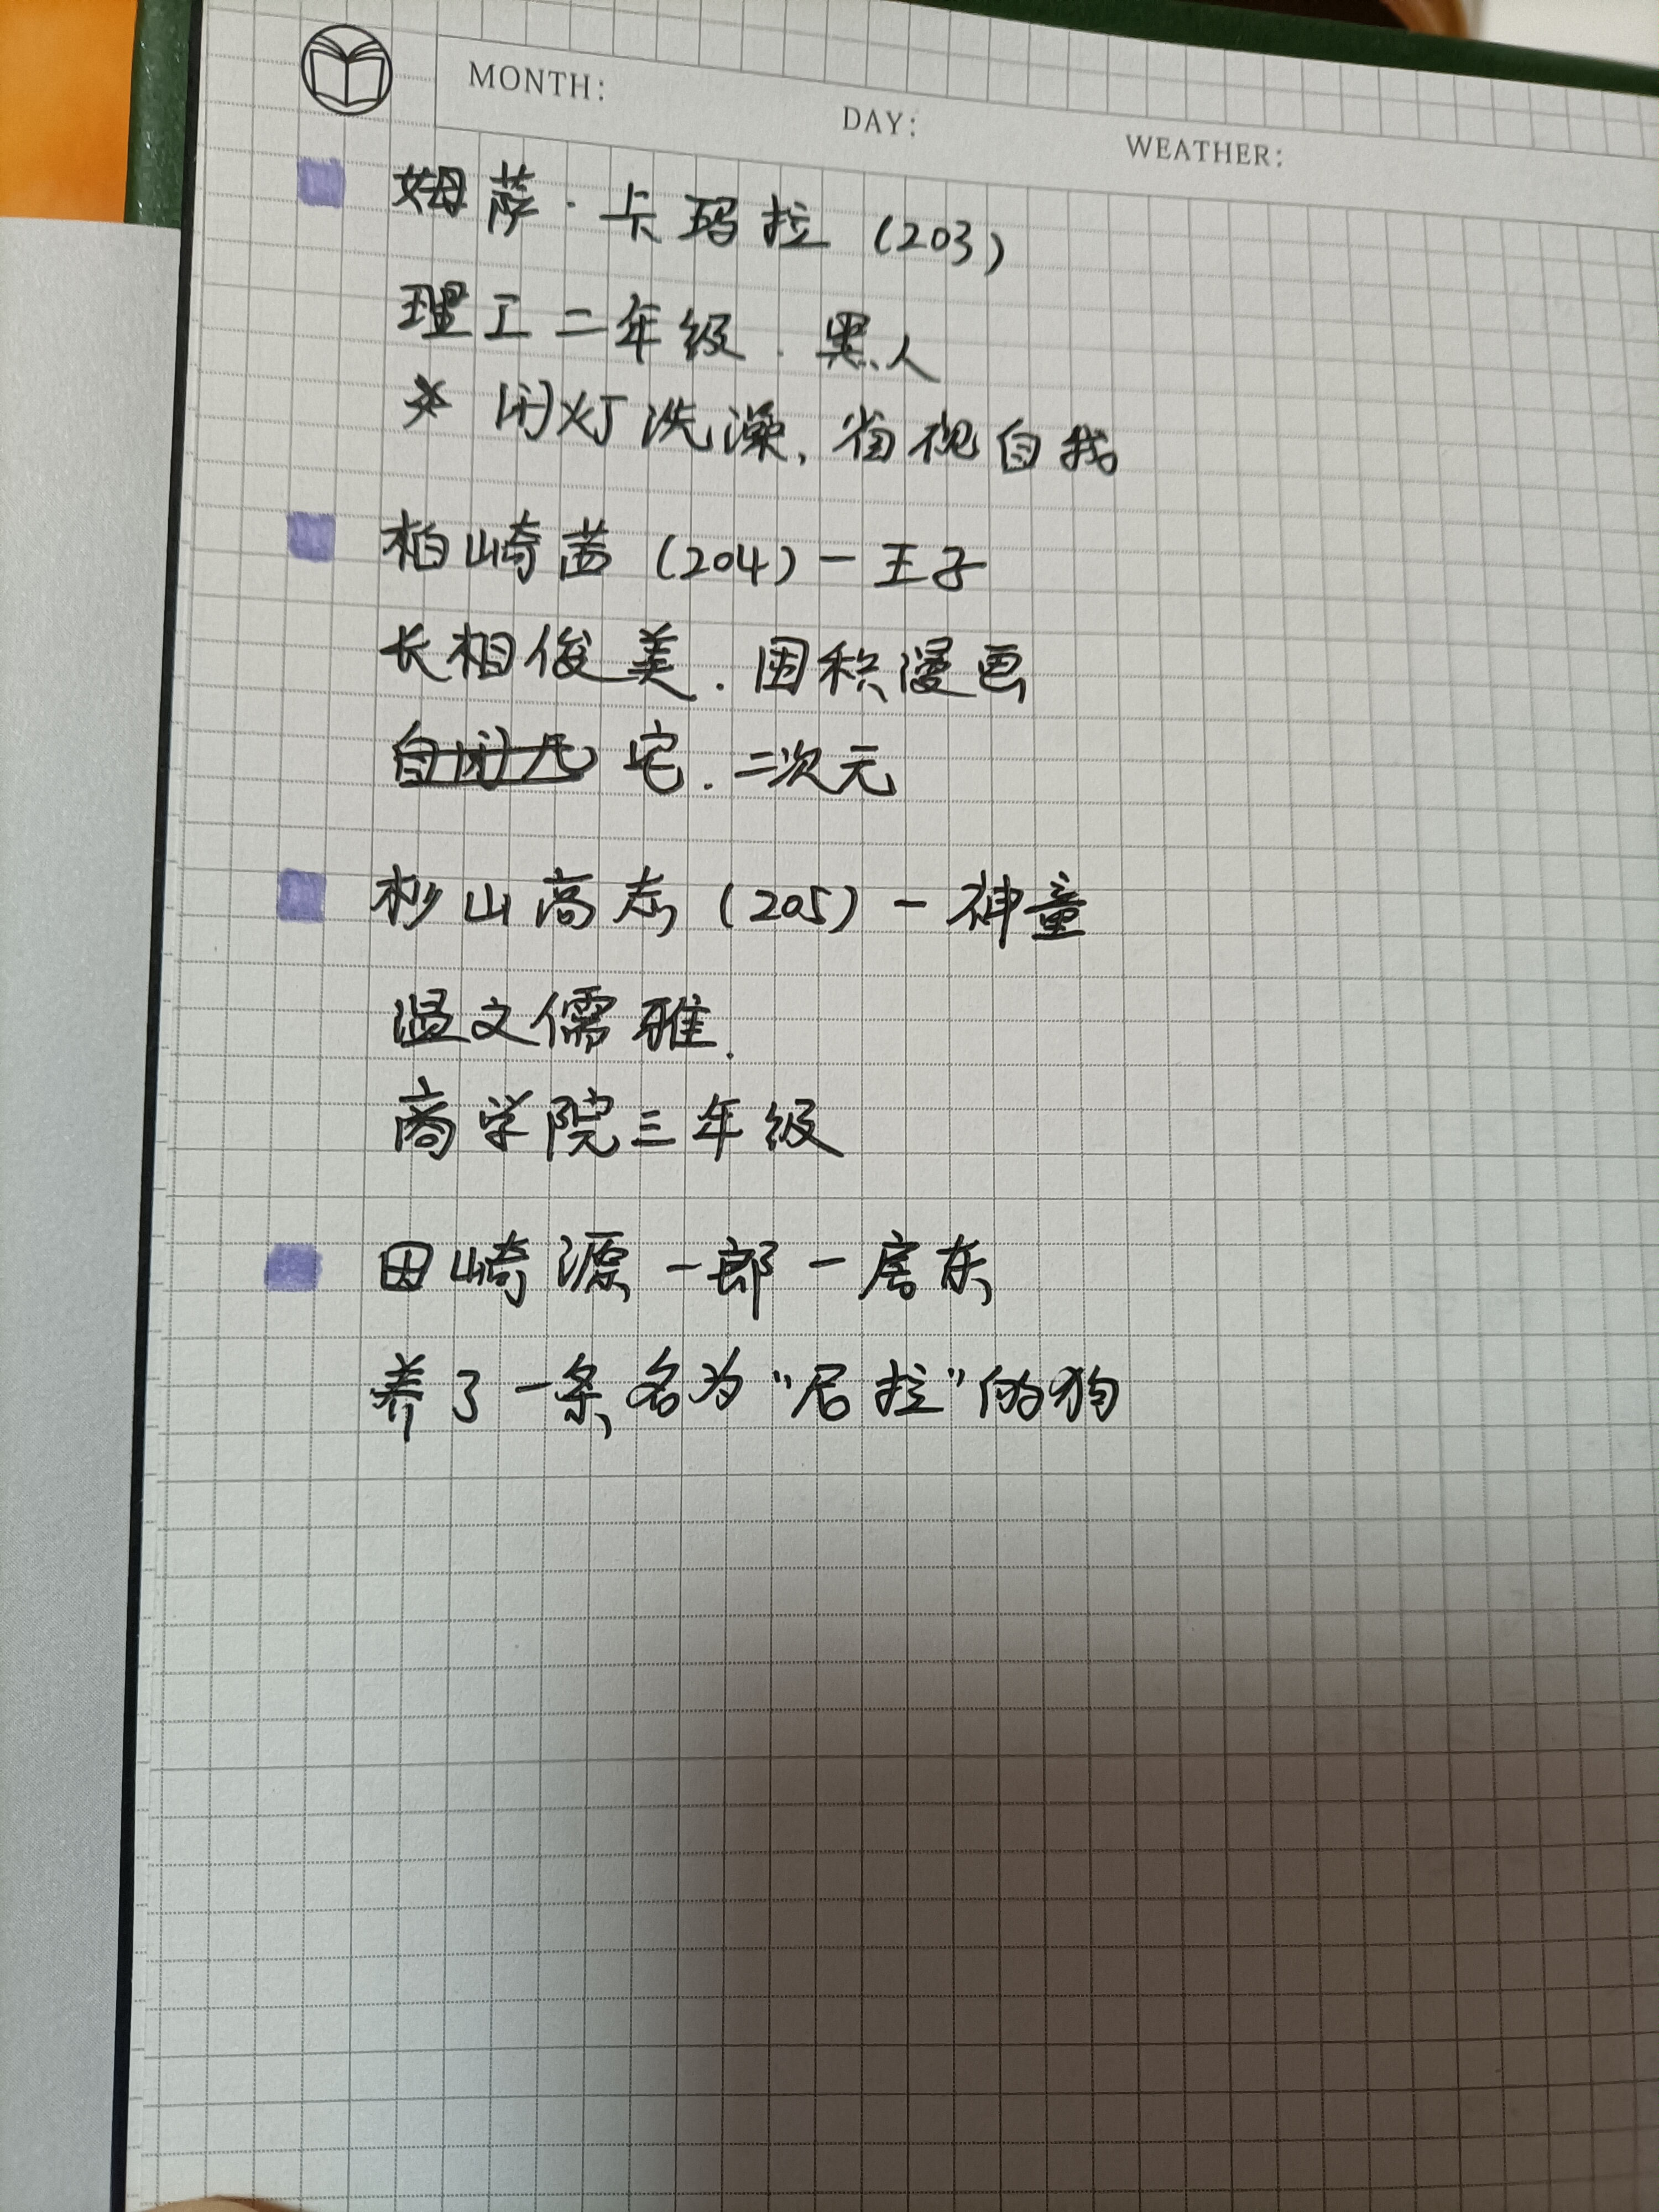 MONTH: DAY: WEATHER:
姆萨·卡玛拉(203)
理工二年级.黑人
※闭灯洗澡,省视自我
柏崎茜(204)-王子
长相俊美.囤积漫画
宅.二次元
杉山高志(205)-神童
温文儒雅.
商学院三年级
田崎源一郎-房东
养了一条名为“尼拉”的狗